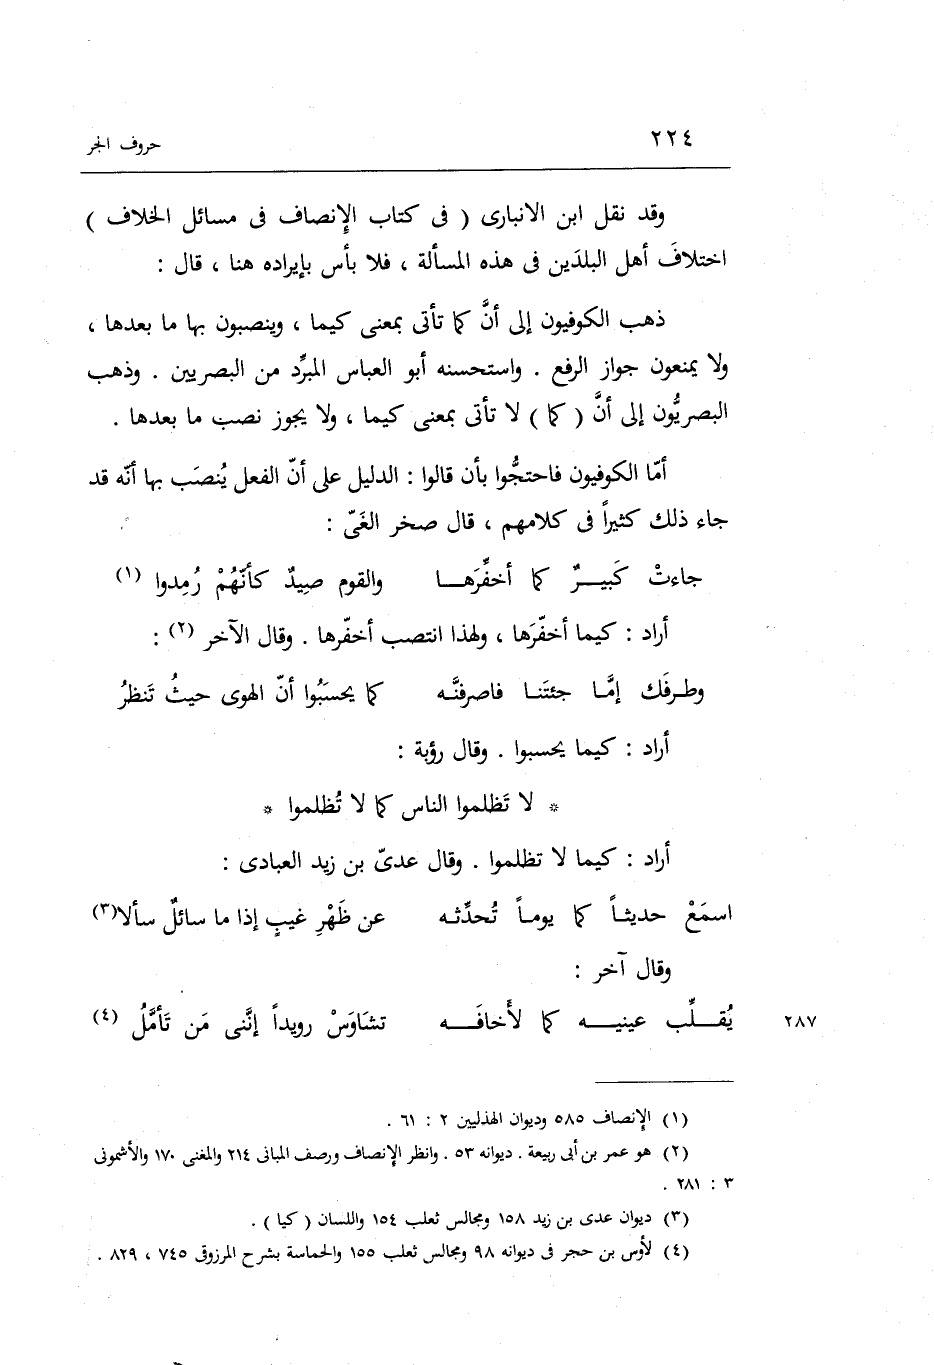 ٢٢٤ حروف الجر
وقد نقل ابن الانبارى ( فى كتاب الإنصاف فى مسائل الخلاف )
اختلافَ أهل البلدَين فى هذه المسألة ، فلا بأس بإيراده هنا ، قال :
ذهب الكوفيون إلى أنَّ كما تأتى بمعنى كيما ، وينصبون بها ما بعدها ،
ولا يمنعون جواز الرفع . واستحسنه أبو العباس المبرِّد من البصريين . وذهب
البصريُّون إلى أنَّ ( كما ) لا تأتى بمعنى كيما ، ولا يجوز نصب ما بعدها .
أمّا الكوفيون فاحتجُّوا بأن قالوا : الدليل على أنّ الفعل يُنصَب بها أنّه قد
جاء ذلك كثيراً فى كلامهم ، قال صخر الغَىّ :
جاءتْ كَبيـــرٌ كما أخفِّرَهـــا والقوم صِيدٌ كأنّهُمْ رُمِدوا (١)
أراد : كيما أخفّرَها ، ولهذا انتصب أخفّرها . وقال الآخر (٢) :
وطـرفَك إمَّـا جئتَنـا فاصرفنَّـه كما يحسَبُوا أنّ الهوى حيثُ تَنظرُ
أراد : كيما يحسبوا . وقال رؤبة :
* لا تَظلموا الناس كما لا تُظلموا *
أراد : كيما لا تظلموا . وقال عدىّ بن زيد العبادى :
اسمَعْ حديثـاً كما يومـاً تُحدِّثـه عن ظَهْرِ غيبٍ إذا ما سائلٌ سألا(٣)
وقال آخر :
يُقـــلِّب عينيـــه كما لأَخافَـــه تشاوَسْ رويداً إنَّنى مَن تَأمَّلُ (٤) ٢٨٧
(١) الإنصاف ٥٨٥ وديوان الهذليين ٢ : ٦١ .
(٢) هو عمر بن أبى ربيعة . ديوانه ٥٣ . وانظر الإنصاف ورصف المبانى ٢١٤ والمغنى ١٧٠ والأشمونى
٣ : ٢٨١ .
(٣) ديوان عدى بن زيد ١٥٨ ومجالس ثعلب ١٥٤ واللسان ( كيا ) .
(٤) لأوس بن حجر فى ديوانه ٩٨ ومجالس ثعلب ١٥٥ والحماسة بشرح المرزوقى ٧٤٥ ، ٨٢٩ .